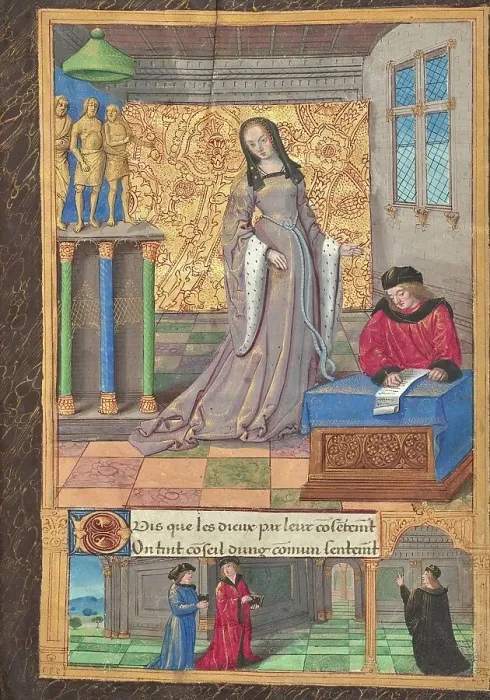 Puis que les dieux par leur cōsētemēt
Ont tint cōseil dung comun sentemēt